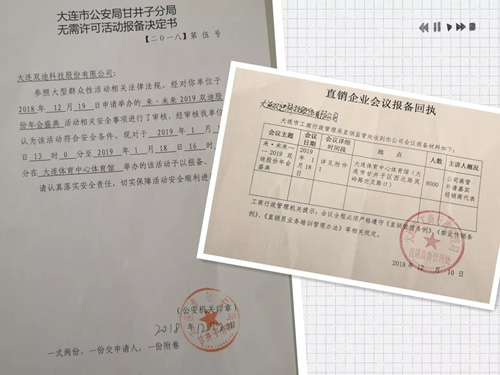 大连市公安局甘井子分局
无需许可活动报备决定书
【二0一八】第 伍 号
大连双迪科技股份有限公司:
参照大型群众性活动相关法律法规,经对你单位于
2018年12月19日申请举办的 来·未来 2019双迪股
份年会盛典 活动相关安全事项进行了审核,经审核我单位
认为该活动符合安全条件,现对于 2019年1月
13时0分至2019年1月18日16时
分在 大连体育中心体育馆 举办的该活动予以报备。
请认真落实安全责任,切实保障活动安全顺利进
(公安机关印章)
2018年12月20日
一式两份,一份交申请人,一份附卷
直销企业会议报备回执
大连双迪科技股份有限公司
大连市工商行政管理局直销监管处收到你公司会议报备材料如下:
会议主题
会议时间
会议详细时间段
地点
人数
主讲人概况
来·未来—2019双迪股份年会盛典
2019年1月18日
详见附件1
大连体育中心体育馆(大连市甘井子区西北路岚岭路交叉路口)
8000
公司高管
外请嘉宾
经销商代表
工商行政管理机关提示:会议全程必须严格遵守《直销管理条例》、《禁止传销条
例》、《直销员业务培训管理办法》等相关规定。
2018年12月10日